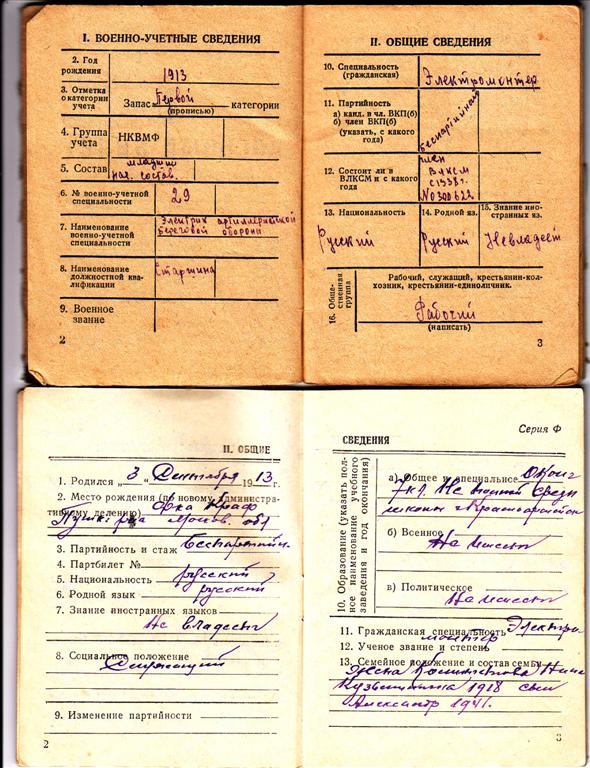 I. ВОЕННО-УЧЕТНЫЕ СВЕДЕНИЯ
2. Год рождения
1913
3. Отметка о категории учета
Запас Первой категории
(прописью)
4. Группа учета
НКВМФ
5. Состав
младший нач. состав.
6. № военно-учетной специальности
29
7. Наименование военно-учетной специальности
Электрик артиллерийской береговой обороны
8. Наименование должностной квалификации
Старшина
9. Военное звание
2
II. ОБЩИЕ СВЕДЕНИЯ
10. Специальность (гражданская)
Электромонтер
11. Партийность
а) канд. в чл. ВКП(б)
б) член ВКП(б)
(указать, с какого года)
беспартийный
12. Состоит ли в ВЛКСМ и с какого года
член
ВЛКСМ
с 1938 г.
13. Национальность
Русский
14. Родной яз.
Русский
15. Знание иностранных яз.
Не владеет
16. Общественная группа
Рабочий, служащий, крестьянин-колхозник, крестьянин-единоличник.
Рабочий
(написать)
3
II. ОБЩИЕ
1. Родился „ 3 “ Сентября 1913 г.
2. Место рождения (по новому административному делению)
Пушк. р-на Москов. обл
3. Партийность и стаж Беспартийн.
4. Партбилет №
5. Национальность русский
6. Родной язык русский
7. Знание иностранных языков
Не владеет
8. Социальное положение
Служащий
9. Изменение партийности
2
Серия Ф
СВЕДЕНИЯ
10. Образование (указать полное наименование учебного заведения и год окончания)
а) Общее и специальное
7 кл. Не полной средн
школы
б) Военное
Не имеет
в) Политическое
Не имеет
11. Гражданская специальность Электро
монтер
12. Ученое звание и степень
13. Семейное положение и состав семьи
Жена Нина
Кузьминична 1918 сын
Александр 1941 г.
3